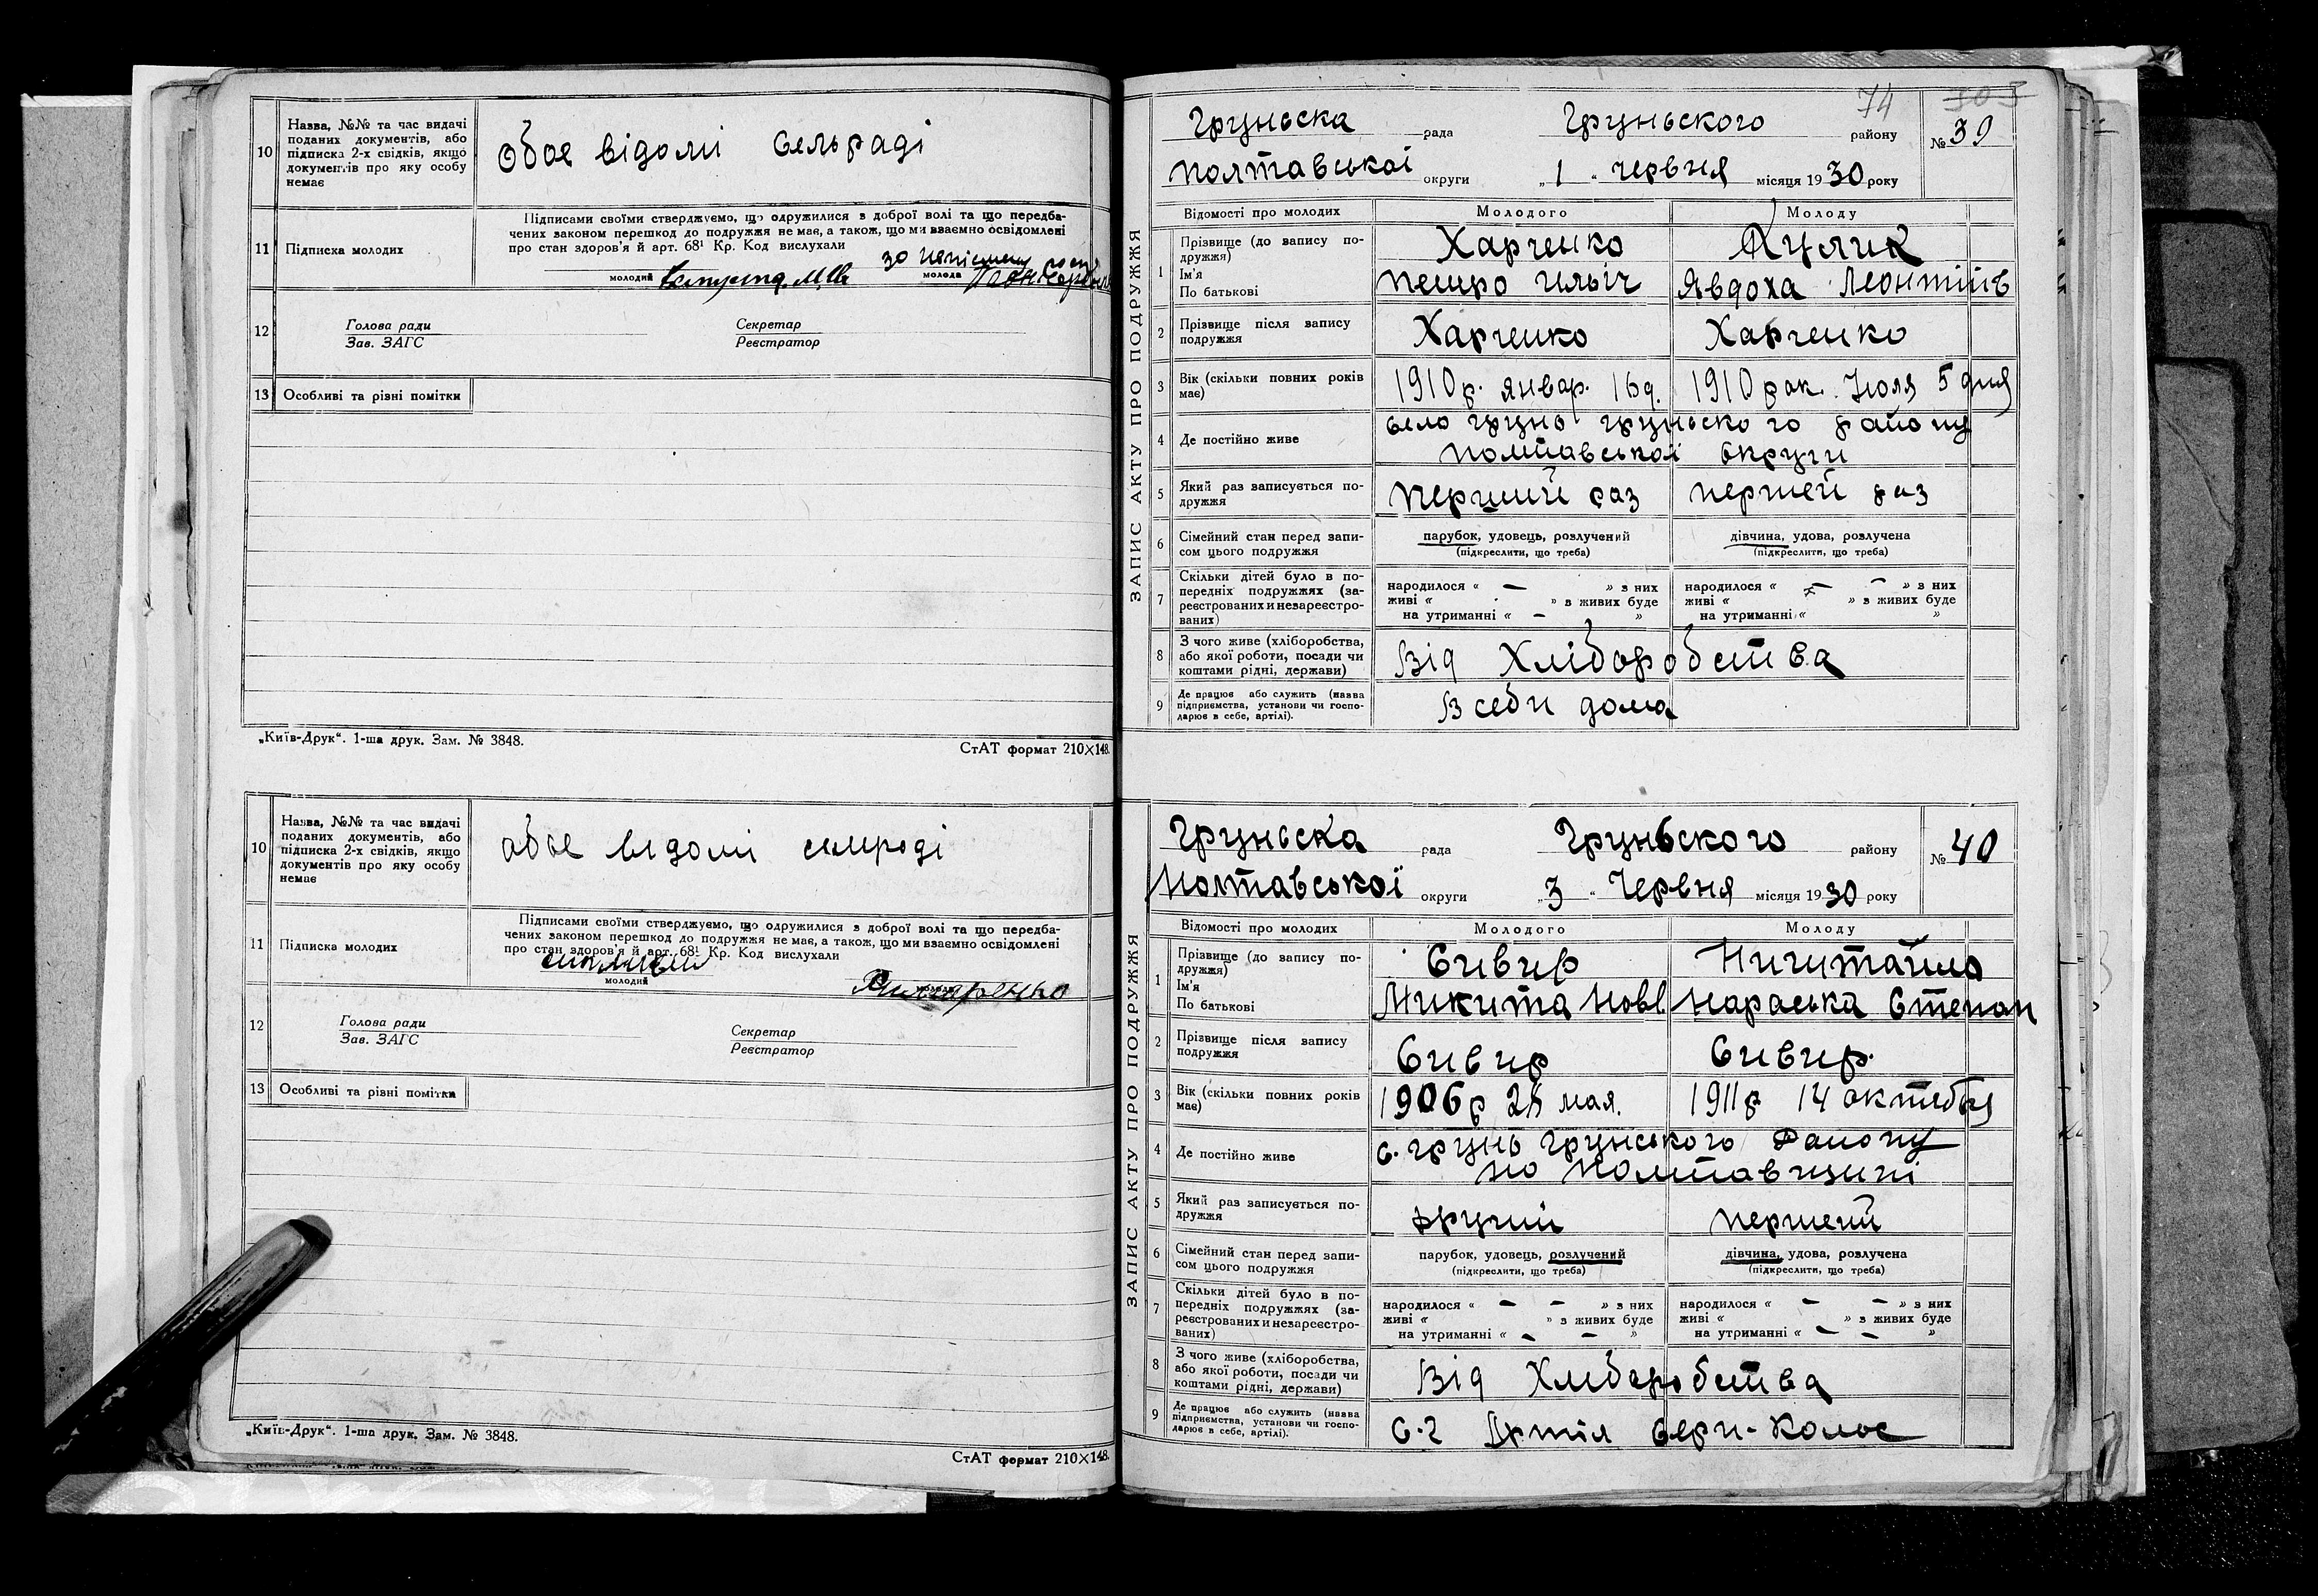 10 Назва, №№ та час видачі
поданих документів, або
підписка 2-х свідків, якщо
документів про яку особу
немає
Обоє відомі сельраді
11 Підписка молодих
Підписами своїми стверджуємо, що одружилися з доброї волі та що передба-
чених законом перешкод до подружжя не має, а також, що ми взаємно освідомлені
про стан здоров'я й арт. 68¹ Кр. Код вислухали
за
молодий молода
12 Голова ради Секретар
Зав. ЗАГС Реєстратор
13 Особливі та різні помітки
„Київ-Друк“. 1-ша друк. Зам. № 3848.
СтАТ формат 210×148.
10 Назва, №№ та час видачі
поданих документів, або
підписка 2-х свідків, якщо
документів про яку особу
немає
обоє відомі
11 Підписка молодих
Підписами своїми стверджуємо, що одружилися з доброї волі та що передба-
чених законом перешкод до подружжя не має, а також, що ми взаємно освідомлені
про стан здоров'я й арт. 68¹ Кр. Код вислухали
молодий
12 Голова ради Секретар
Зав. ЗАГС Реєстратор
13 Особливі та різні помітки
„Київ-Друк“. 1-ша друк. Зам. № 3848.
СтАТ формат 210×148.
74 305
Груньска рада Груньского району № 39
Полтавської округи „1“ червня місяця 1930 року
ЗАПИС АКТУ ПРО ПОДРУЖЖЯ
Відомості про молодих Молодого Молоду
1 Прізвище (до запису по-
дружжя)
Ім'я
По батькові
Харченко
Петро Ильіч Явдоха Леонтіїв
2 Прізвище після запису
подружжя
Харченко Харченко
3 Вік (скільки повних років
має)
1910 р. январ. 16 д. 1910 рок. Июля 5 дня
4 Де постійно живе
село Грунь Груньского району
Полтавської округи
5 Який раз записується по-
дружжя
Перший раз першей раз
6 Сімейний стан перед запи-
сом цього подружжя
парубок, удовець, розлучений
(підкреслити, що треба)
дівчина, удова, розлучена
(підкреслити, що треба)
7 Скільки дітей було в по-
передніх подружжях (за-
реєстрованих и незареєстро-
ваних)
народилося « — » з них
живі « » з живих буде
на утриманні « — »
народилося « — — » з них
живі « » з живих буде
на утриманні « »
8 З чого живе (хліборобства,
або якої роботи, посади чи
коштами рідні, держави)
Від Хліборобства
9 Де працює або служить (назва
підприємства, установи чи госпо-
дарює в себе, артілі).
В себи дома
Груньска рада Груньского району № 40
Полтавської округи „3“ Червня місяця 1930 року
ЗАПИС АКТУ ПРО ПОДРУЖЖЯ
Відомості про молодих Молодого Молоду
1 Прізвище (до запису по-
дружжя)
Ім'я
По батькові
Сивир Ничитайло
Микита Параська Степан
2 Прізвище після запису
подружжя
Сивир Сивир.
3 Вік (скільки повних років
має)
1906 р 28 мая. 1911 р 14 октебря
4 Де постійно живе
с. Грунь Грунського Району
на Полтавщині
5 Який раз записується по-
дружжя
другий першей
6 Сімейний стан перед запи-
сом цього подружжя
парубок, удовець, розлучений
(підкреслити, що треба)
дівчина, удова, розлучена
(підкреслити, що треба)
7 Скільки дітей було в по-
передніх подружжях (за-
реєстрованих и незареєстро-
ваних)
народилося « — — » з них
живі « » з живих буде
на утриманні « — — »
народилося « — — » з них
живі « » з живих буде
на утриманні « — — »
8 З чого живе (хліборобства,
або якої роботи, посади чи
коштами рідні, держави)
Від Хлиборобства
9 Де працює або служить (назва
підприємства, установи чи госпо-
дарює в себе, артілі).
С-г Артіл Серп-Колос